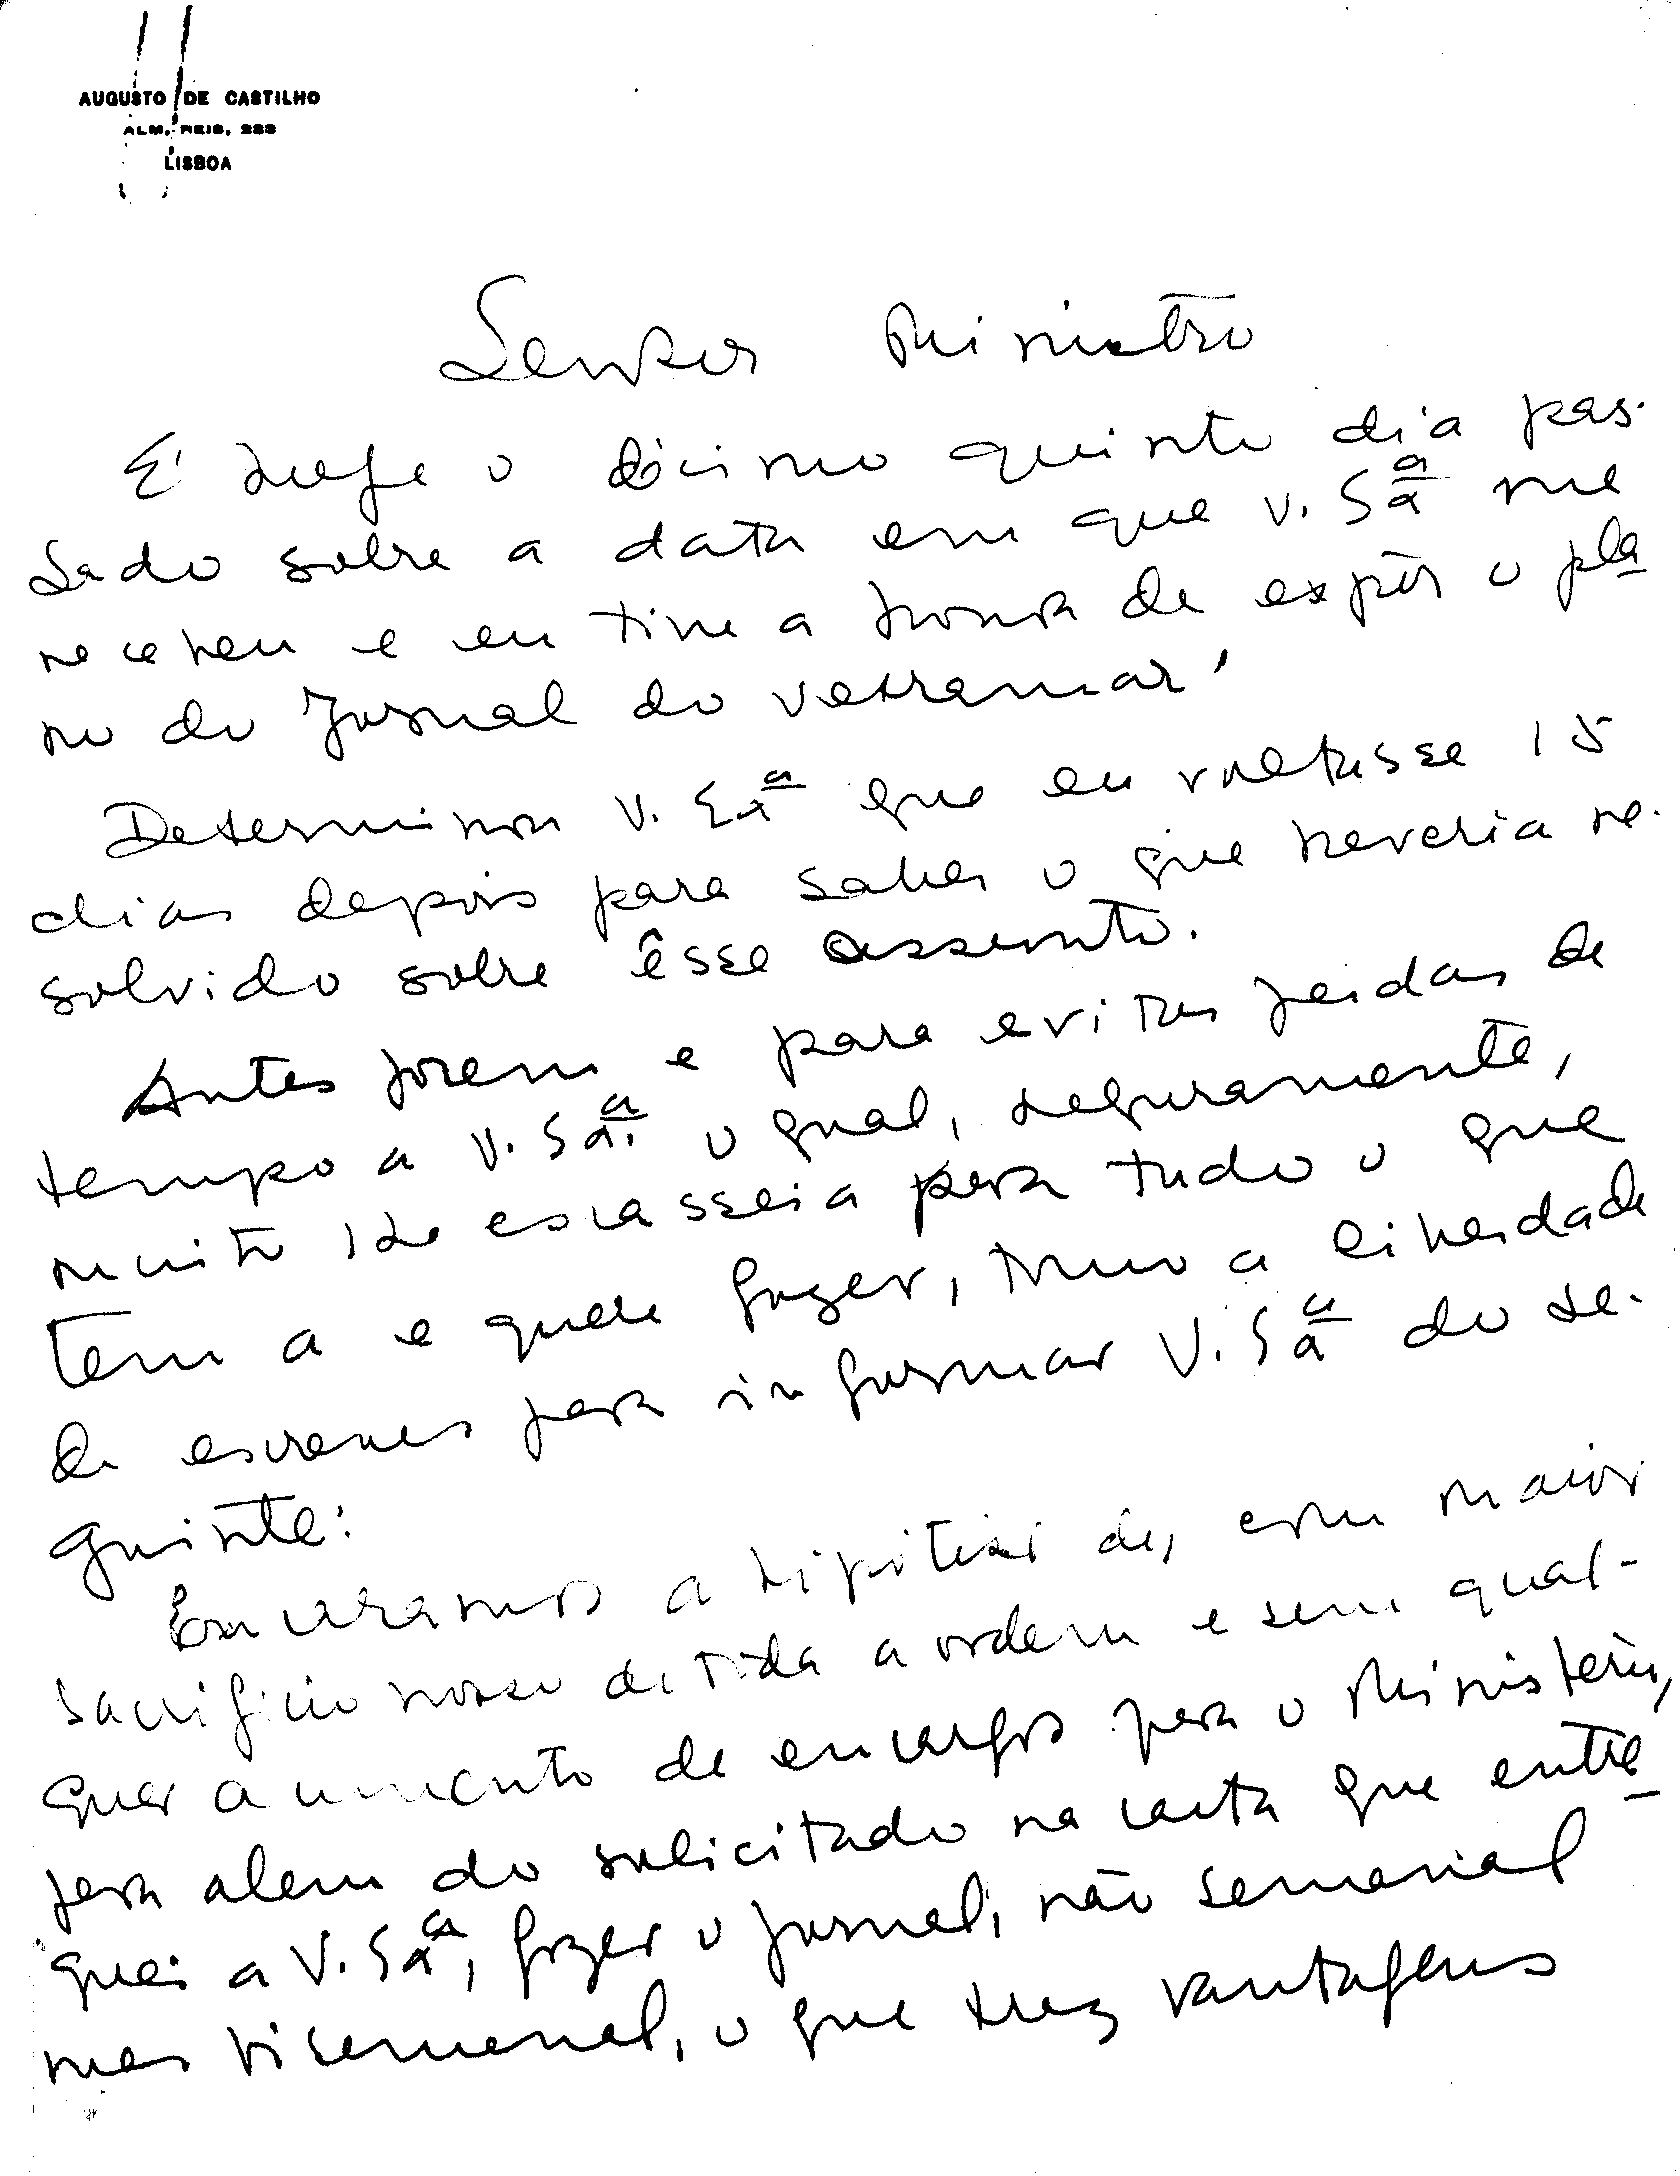 AUGUSTO DE CASTILHO
ALM. REIS, 222
LISBOA
Senhor Ministro
É hoje o décimo quinto dia pas-
sado sobre a data em que V. Exª me
recebeu e eu tive a honra de expôr o pla
no do Jornal do Vetramar'
Determinou V. Exª que eu voltasse 15
dias depois para saber o que haveria re-
solvido sobre êsse assunto.
Antes porem e para evitar perdas de
tempo a V. Exª. o qual, seguramente,
muito lhe escasseia para tudo o que
tem a e quere fazer, tomo a liberdade
de escrever para informar V. Exª do se-
guinte:
Encaramos a hipótese de, com maior
sacrificio nosso de toda a ordem e sem qual-
quer aumento de encargos para o Ministério,
para alem do solicitado na carta que entre
guei a V. Exª, fazer o jornal, não semanal
mas bisemanal, o que traz vantagens